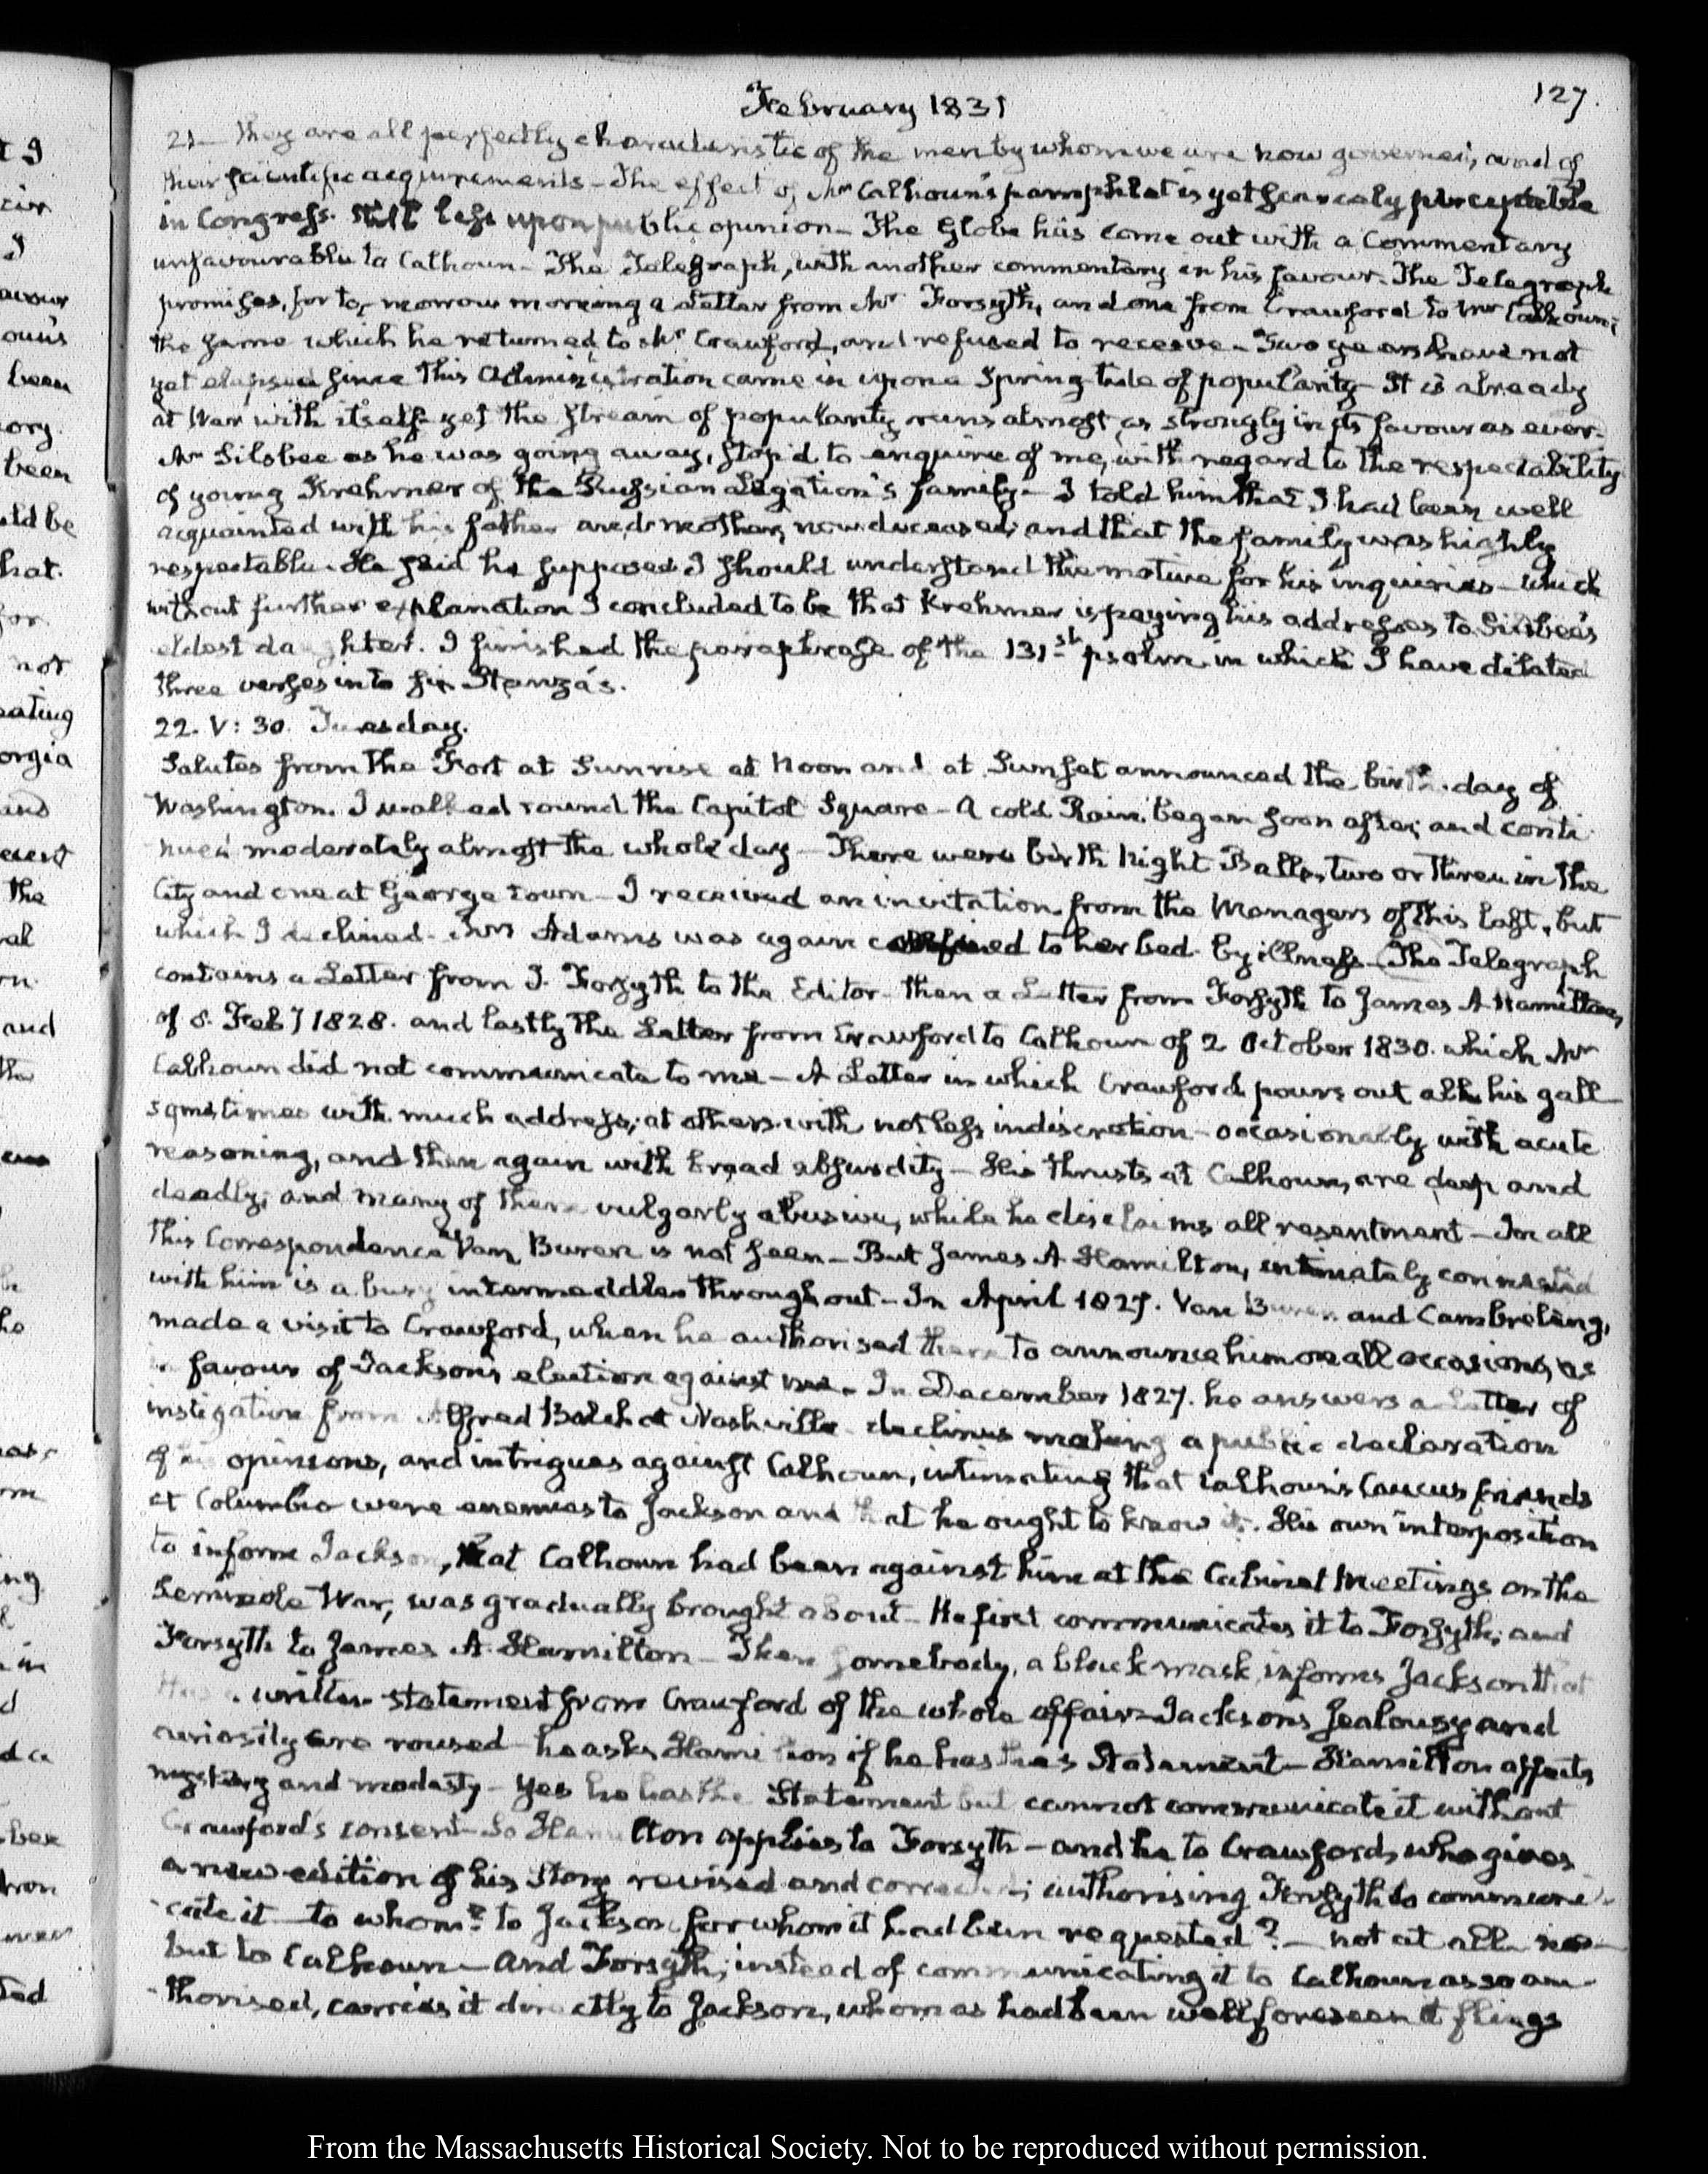 February 1831
127.
21— They are all perfectly characteristic of the men by whom we are now governed, and of
their scientific acquirements — The effect of Mr Calhoun's pamphlet is yet scarcely perceptible
in Congress. Still less upon public opinion — The Globe has come out with a Commentary
unfavourable to Calhoun — The Telegraph, with another commentary in his favour. The Telegraph
promises, for to-morrow morning a Letter from Mr Forsyth, and one from Crawford to Mr Calhoun;
the same which he returned to Mr Crawford, and refused to receive — Two years have not
yet elapsed since this Administration came in upon a Spring-tide of popularity — It is already
at War with itself — yet the stream of popularity runs almost as strongly in its favour as ever.
Mr Silsbee as he was going away, stop'd to enquire of me, with regard to the respectability
of young Krehmer of the Russian Legation's family — I told him that I had been well
acquainted with his father and mother, now deceased; and that the family was highly
respectable. He said he supposed I should understand the motive for his inquiries — which
without further explanation I concluded to be that Krehmer is paying his addresses to Silsbee's
eldest daughter. I finished the paraphrase of the 131st psalm, in which I have dilated
three verses into six Stanza's.
22. V: 30. Tuesday.
Salutes from the Fort at Sunrise at Noon and at Sunset announced the birth-day of
Washington. I walked round the Capitol Square — A cold Rain began soon after, and conti-
nued moderately almost the whole day — There were birth Night Balls, two or three in the
City and one at George town — I received an invitation from the Managers of this last, but
which I declined. Mrs Adams was again confined to her bed by illness — The Telegraph
contains a Letter from J. Forsyth to the Editor — then a Letter from Forsyth to James A Hamilton,
of 8. Feby 1828. and lastly the Letter from Crawford to Calhoun of 2 October 1830. which Mr
Calhoun did not communicate to me — A Letter in which Crawford pours out all his gall
sometimes with much address, at others with not less indiscretion — occasionally with acute
reasoning, and then again with broad absurdity — His thrusts at Calhoun, are deep and
deadly; and many of them vulgarly abusive, while he disclaims all resentment — In all
this Correspondence Van Buren is not seen — But James A Hamilton, intimately connected
with him is a busy intermeddler throughout — In April 1827. Van Buren and Cambreleng,
made a visit to Crawford, when he authorised them to announce him on all occasions, as
in favour of Jackson's election against me — In December 1827. he answers a Letter of
instigation from Alfred Balch at Nashville — declines making a public declaration
of his opinions, and intrigues against Calhoun, intimating that Calhoun's Caucus friends
at Columbia were enemies to Jackson and that he ought to know it. His own interposition
to inform Jackson, that Calhoun had been against him at the Cabinet Meetings on the
Seminole War, was gradually brought about — He first communicates it to Forsyth; and
Forsyth to James A. Hamilton — Then somebody, a black mask, informs Jackson that
written statement from Crawford of the whole affair — Jacksons jealousy and
curiosity are roused — he asks Hamilton if he has this Statement — Hamilton affects
mystery and modesty — Yes he has the Statement but cannot communicate it without
Crawford's consent — So Hamilton applies to Forsyth — and he to Crawford, who gives
a new edition of his Story revised and corrected; authorising Forsyth to communi-
cate it — to whom? to Jackson for whom it had been requested? — not at all no —
but to Calhoun — and Forsyth, instead of communicating it to Calhoun as so au-
thorised, carries it directly to Jackson, whom as had been well foreseen it flings
From the Massachusetts Historical Society. Not to be reproduced without permission.